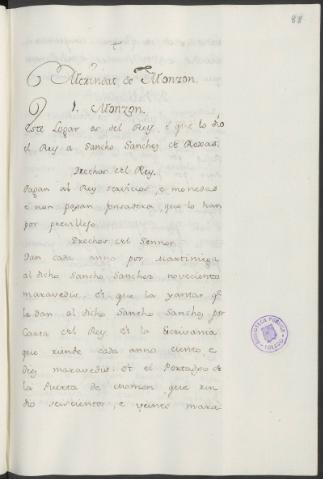 88
Merindat de Monzon.
1. Monzon.
Este Logar es del Rey, é que lo dio
el Rey a Sancho Sanchez de Roxas.
Drechos del Rey.
Pagan al Rey servicios, e monedas
e non pagan fonsadera, que lo han
por previllejo.
Drechos del Sennor.
Dan cada anno por Martiniega
al dicho Sancho Sanchez novecientos
maravedis. et que la yantar que
la dan al dicho Sancho Sanchez por
Carta del Rey. et la Escrivania
que rinde cada anno ciento e
diez maravedis. et el Portadgo de
la Puerta de que rin
dio seiscientos, e veinte mara
BIBLIOTECA PUBLICA
TOLEDO